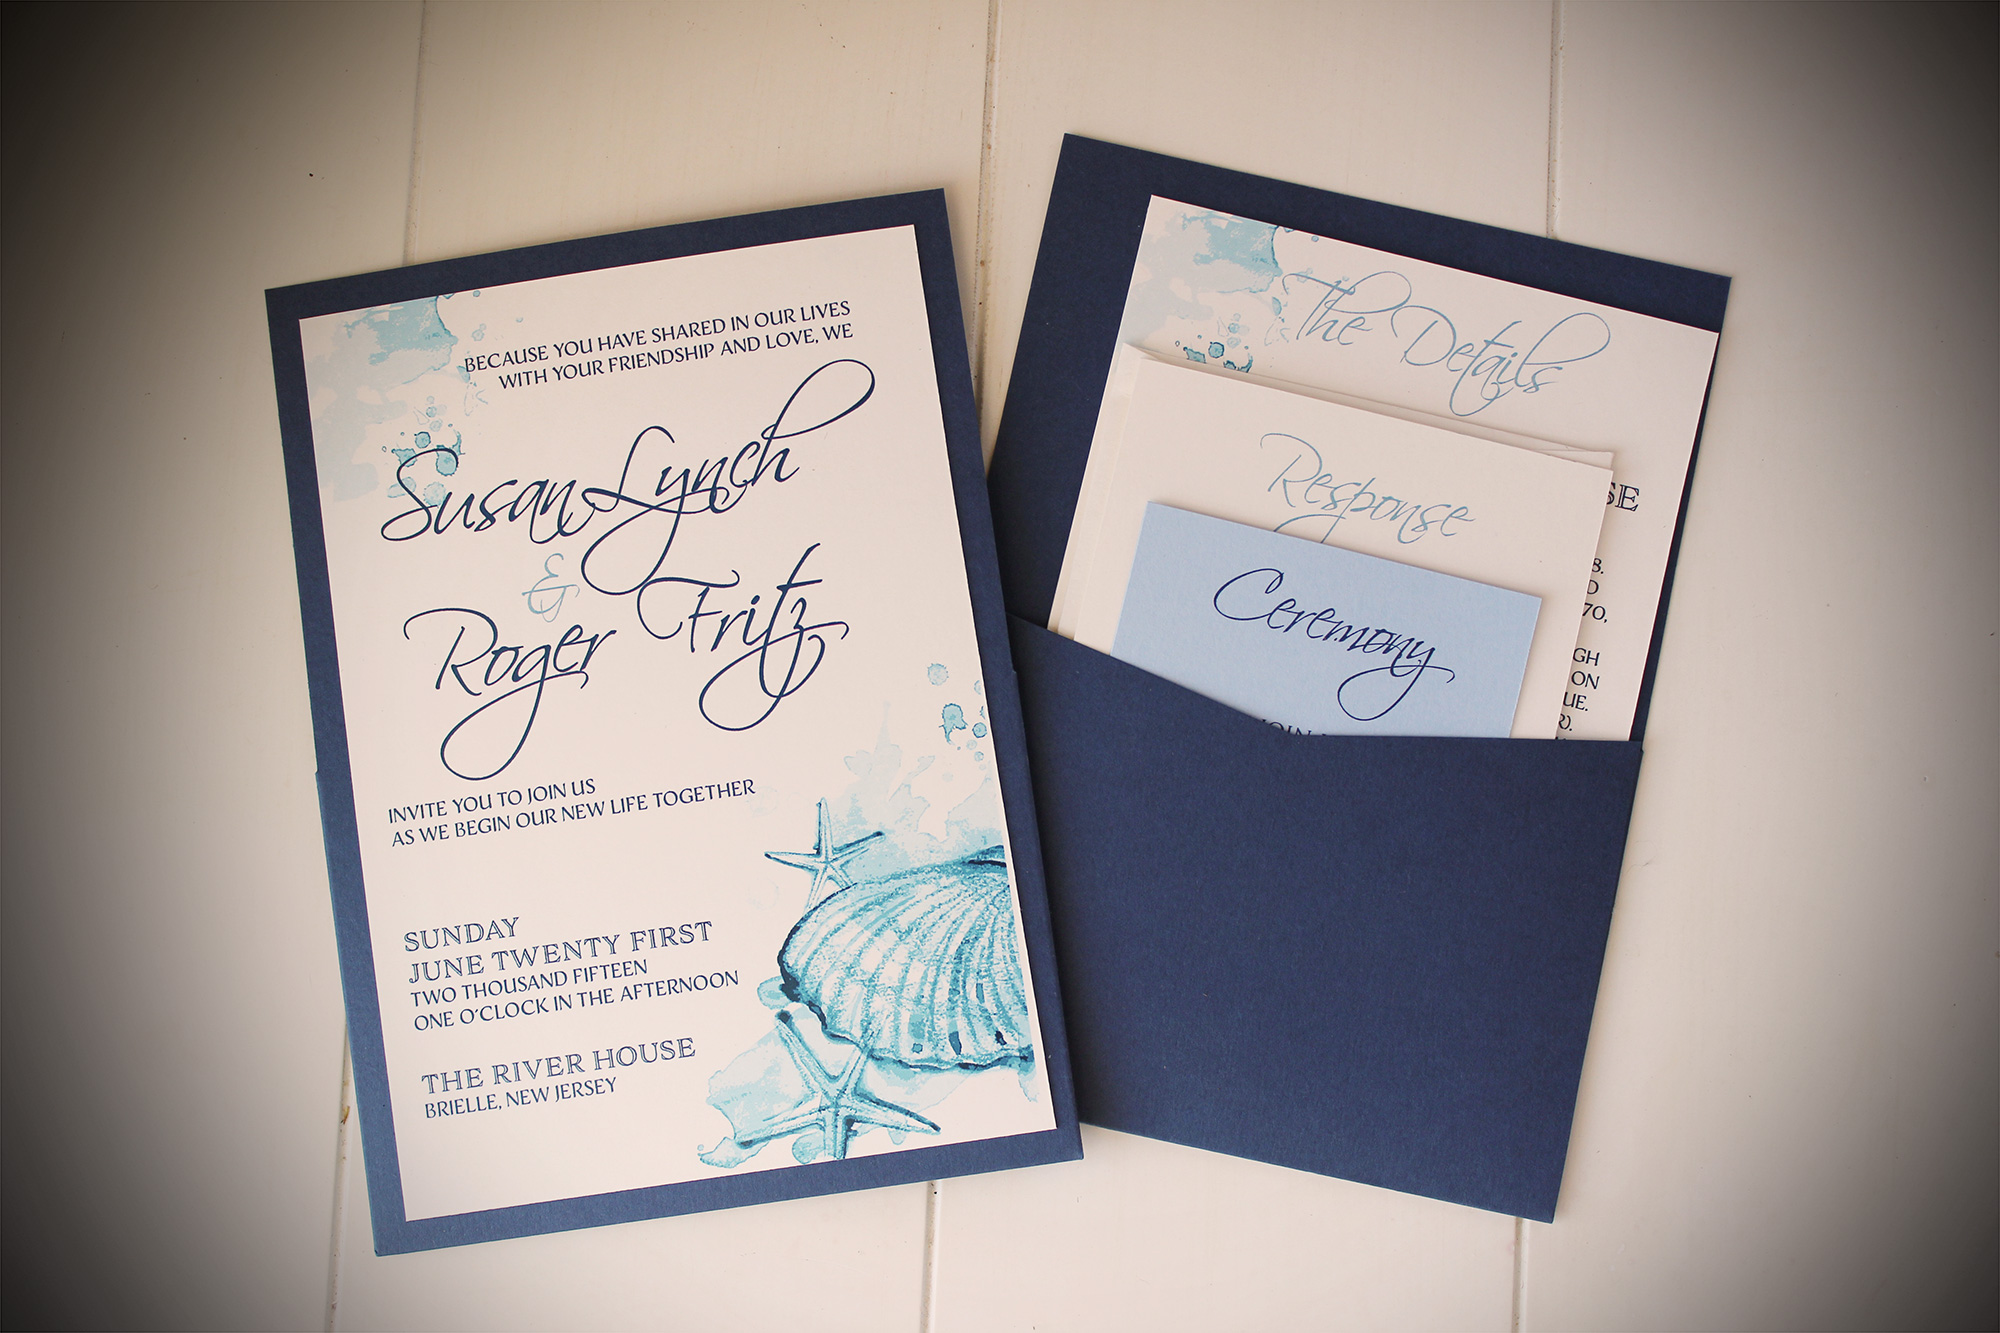 BECAUSE YOU HAVE SHARED IN OUR LIVES
WITH YOUR FRIENDSHIP AND LOVE, WE
Susan Lynch
&
Roger Fritz
INVITE YOU TO JOIN US
AS WE BEGIN OUR NEW LIFE TOGETHER
SUNDAY
JUNE TWENTY FIRST
TWO THOUSAND FIFTEEN
ONE O'CLOCK IN THE AFTERNOON
THE RIVER HOUSE
BRIELLE, NEW JERSEY
The Details
SE
8.
D
70,
GH
ON
UE.
R).
Response
Ceremony
JOIN